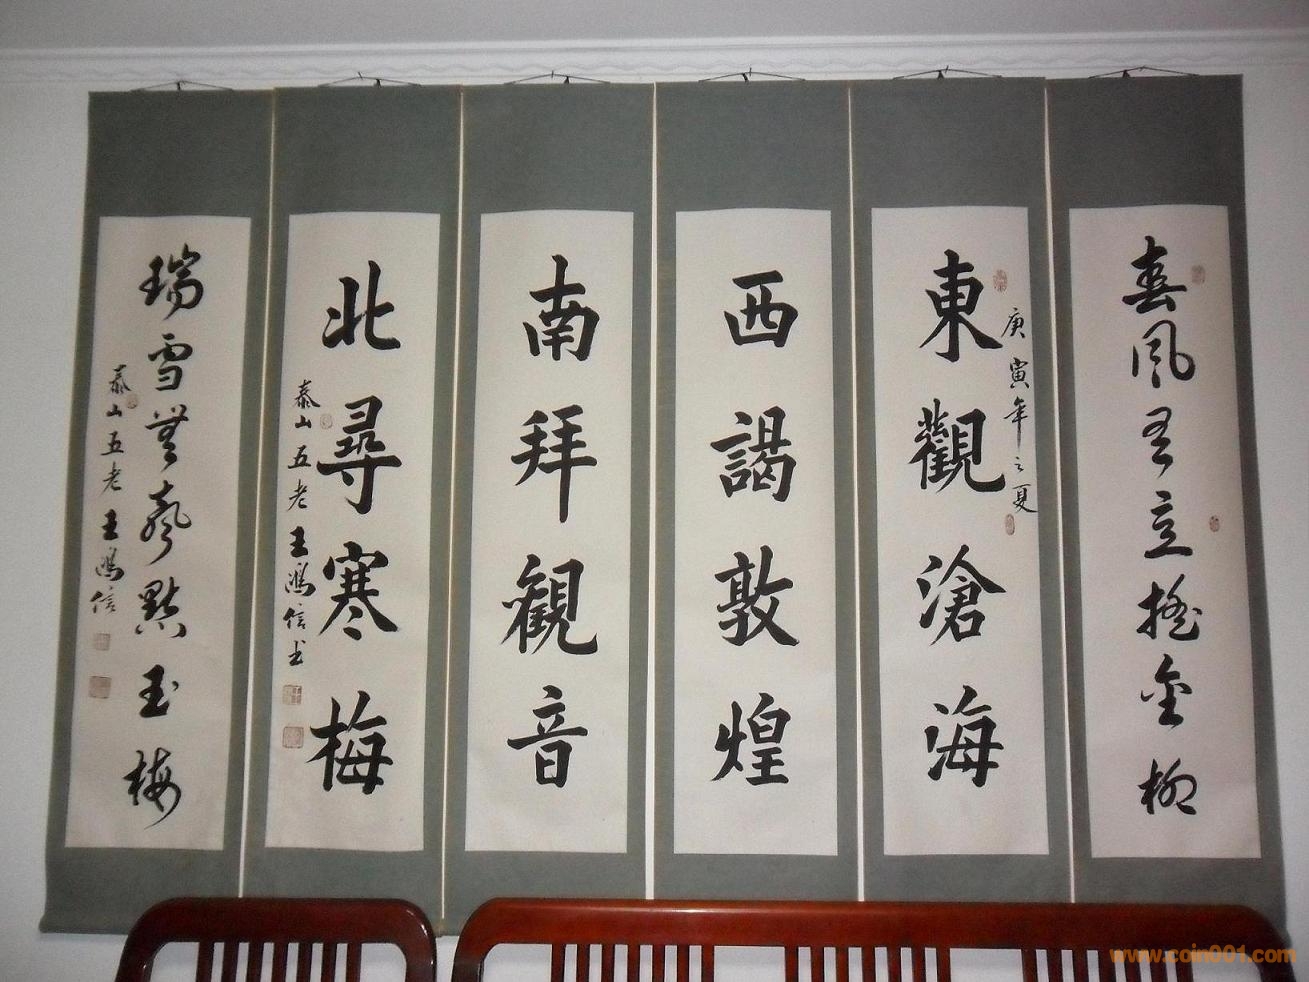 春風有意搖金柳
庚寅年之夏
東觀滄海
西謁敦煌
南拜観音
北尋寒梅
泰山五老王鴻信书
瑞雪無聲點玉梅
泰山五老王鴻信
www.coin001.com